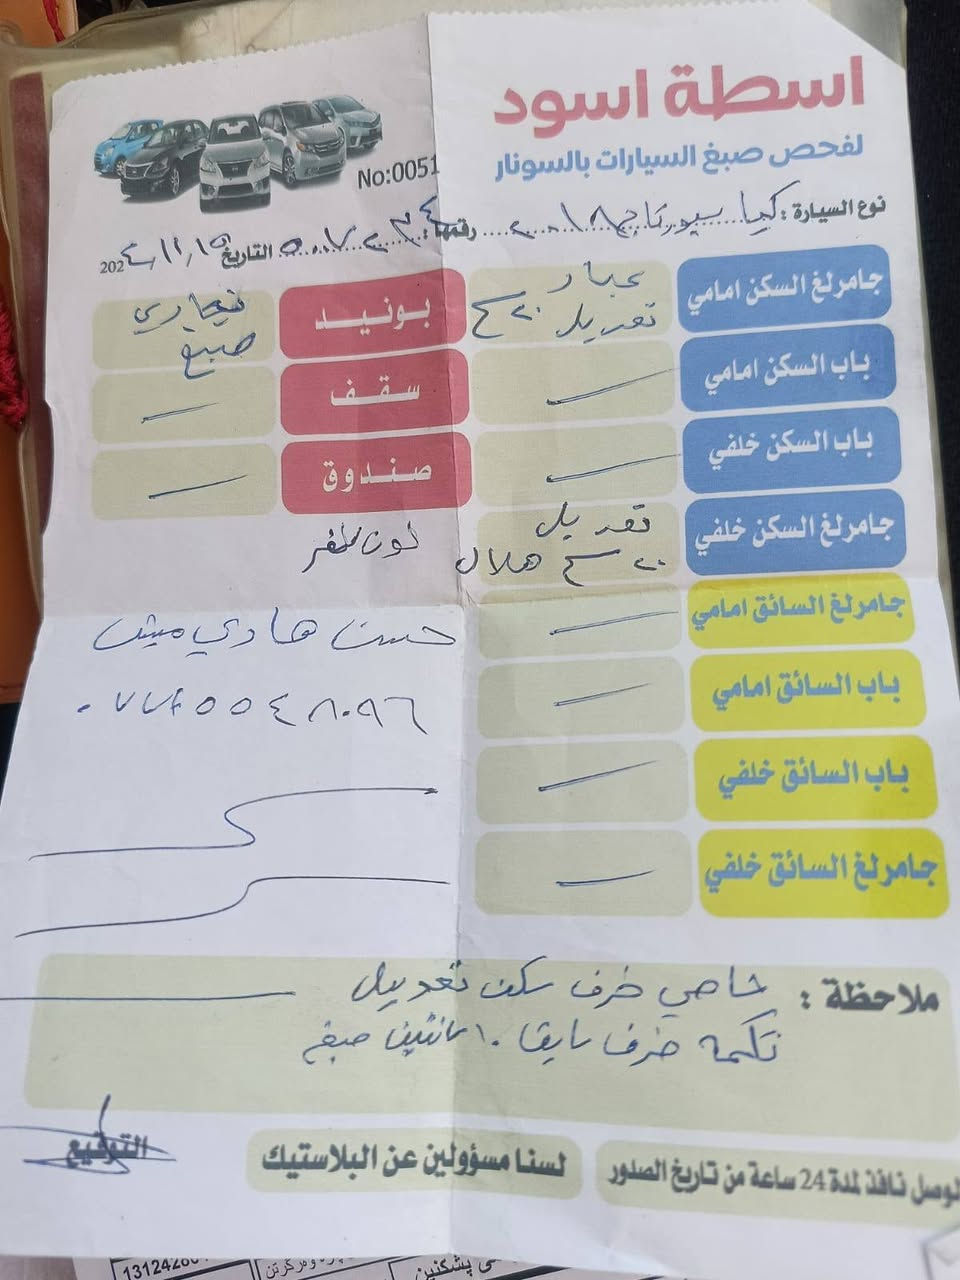 اسطة اسود
لفحص صبغ السيارات بالسونار
No:0051
نوع السيارة : كيا سبورتاج ٢٠٠١٨ رقمها:
التاريخ ١٥/١١/2024
جامرلغ السكن امامي
تعديل ٢٠ سم
بونيد
تجاري
صبغ
باب السكن امامي
سقف
باب السكن خلفي
صندوق
جامرلغ السكن خلفي
تعديل
٢٠ سم هلال
جامرلغ السائق امامي
حسن هادي
باب السائق امامي
باب السائق خلفي
جامرلغ السائق خلفي
ملاحظة : شاصي طرف سكن تعديل
تكمة طرف سايق ١٠ سانتين صبغ
التوقيع
لسنا مسؤولين عن البلاستيك
الوصل نافذ لمدة 24 ساعة من تاريخ الصدور